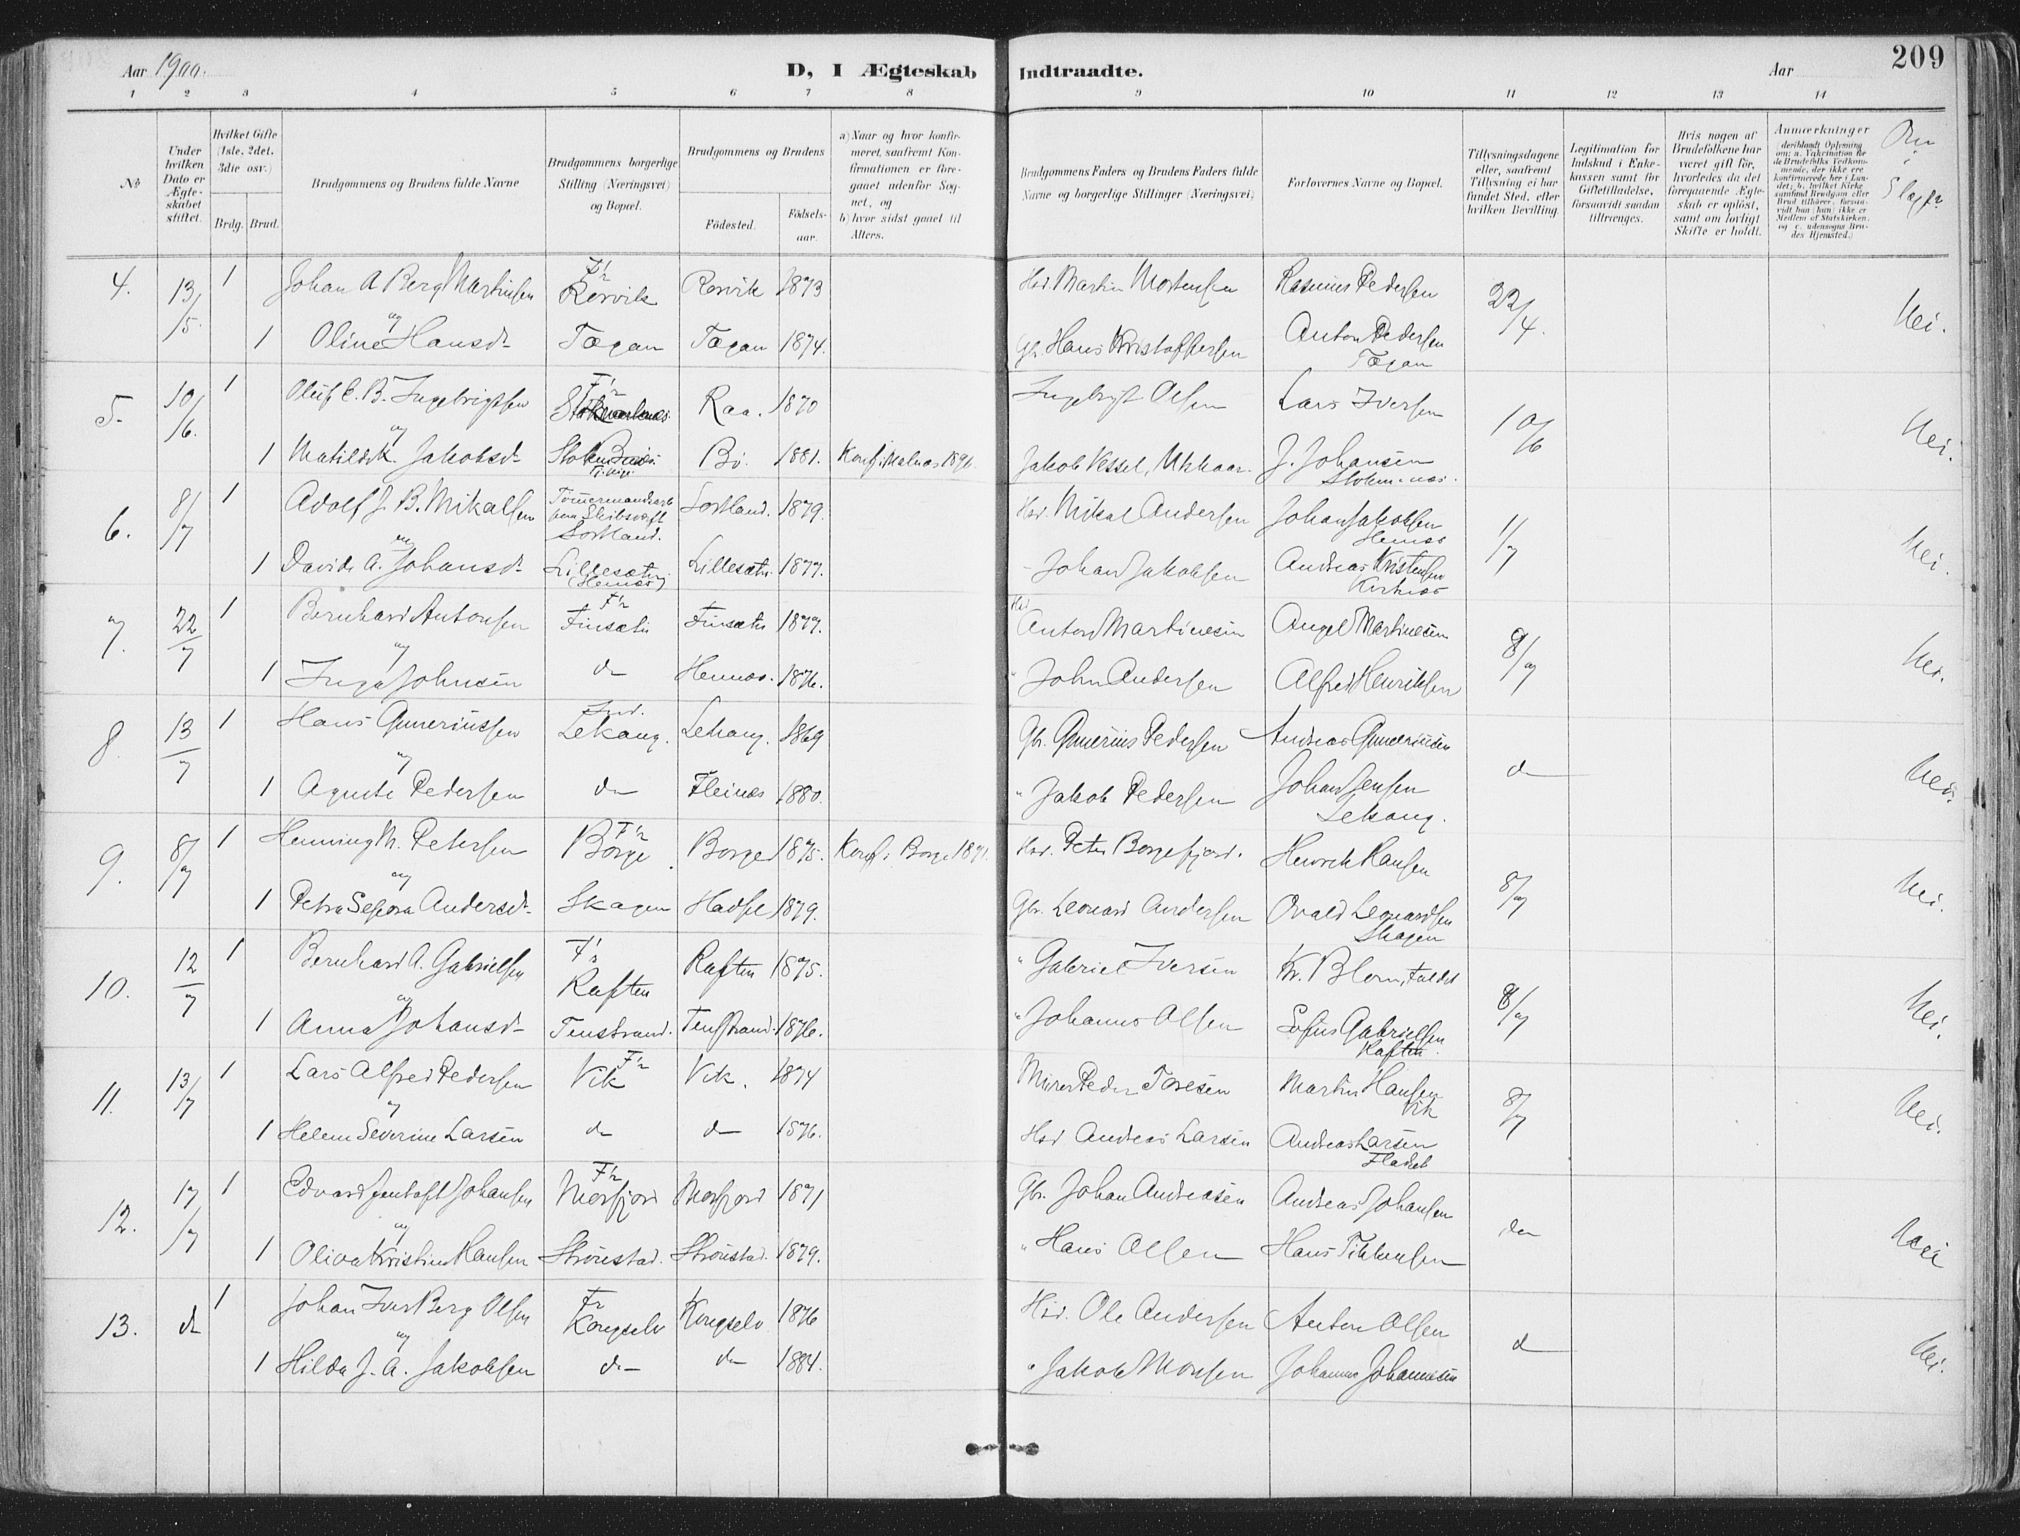 Aar 1900.
D, I Ægteskab Indtraadte.
Aar
209
1 2 3 4 5 6 7 8 9 10 11 12 13 14
No
Under hvilken Dato er Ægteskabet stiftet.
Hvilket Gifte (1ste, 2det, 3die osv.)
Brdg. Brud.
Brudgommens og Brudens fulde Navne
Brudgommens borgerlige Stilling (Næringsvei) og Bopæl.
Brudgommens og Brudens
Födested.
Födselsaar.
a) Naar og hvor konfirmeret, saafremt Konfirmationen er foregaaet udenfor Sognet, og
b) hvor sidst gaaet til Alters.
Brudgommens Faders og Brudens Faders fulde Navne og borgerlige Stillinger (Næringsvei)
Forlovernes Navne og Bopæl.
Tillysningsdagene eller, saafremt Tillysning ei har fundet Sted, efter hvilken Bevilling
Legitimation for Indskud i Enkekassen samt for Giftetilladelse, forsaavidt saadan tiltrænges.
Hvis nogen af Brudefolkene har været gift för, hvorledes da det foregaaende Ægteskab er oplöst, samt om lovligt Skifte er holdt.
Anmærkninger
Om i Slægt
4. 13/5. 1 Johan A Berg Martinsen F'r Rørvik Rørvik 1873 Hsd. Martin Mortensen Rasmus Pedersen 22/4. Nei.
og
1 Oline Hansd. Tøgan Tøgan 1874. Gbr. Hans Kristoffersen Anton Pedersen Tøgan
5. 10/6. 1 Oluf C. B. Ingebrigtsen F'r Raa. 1870 Ingebrigt Olsen Lars Iversen 10/6 Nei.
og
1 Jakobsd. Bø. 1881. Konf. i Malnes 1896. Jakob Vessel, J. Johansen
6. 8/7 1 Adolf J. B. Mikalsen Sortland. Sortland. 1879. Hsd. Mikal Andersen Johan Jakobsen Hennes 1/7 Nei.
og
1 A. Johansd. Lillesæter (Hennes) Lillesæter 1877. Johan Jakobsen Andreas Kristensen
7. 22/7 1 Bernhard Antonsen F'r Finsæter Finsæter 1877. Hsd Anton Martinesen Angel Martinesen 8/7 Nei.
og
1 Inga Johnsen do Hennes. 1876. John Andersen Alfred Henriksen
8. 13/7 1 Hans Gunerinssen Ind. Lekang. Lekang. 1869 Gbr. Gunerius Pedersen Andreas Guneriusen do Nei.
og
1 Pedersen do Fleines 1880. Jakob Pedersen Johan Jensen Lekang.
9. 8/7 1 Henning M. Petersen F'r Borge Borge 1875. Konf. i Borge 1891. Hsd. Peter Borgefjord. Henrik Hansen 8/7 Nei.
og
1 Petra Sefora Andersd. Skagen Hadsel 1879. Gbr. Leonard Andersen Ovald Leonardsen Skagen
10. 12/7 1 Bernhard A. Gabrielsen F'r Raften Raften 1875. Gabriel Iversen Kr. Blom, 8/7 Nei.
og
1 Anna Johansd. Tenstrand. Tenstrand. 1876. Johannes Olsen Sofus Gabrielsen Raften.
11. 13/7 1 Lars Alfred Pedersen F'r Vik Vik. 1874 Murer Peder Toresen Martin Hansen Vik 8/7 Nei.
og
1 Helene Severine Larsen do do 1876. Hsd. Andreas Larsen Andreas Larsen
12. 17/7 1 Edvard Jentoft Johansen F'r Morfjord Morfjord 1871 Gbr. Johan Andreasen Andreas Johansen do Nei
og
1 Oliva Kristine Hansen Strønstad. Strønstad. 1879. Hans Olsen Hans
13. do 1 Johan Iver Berg Olsen F'r Kongselv Kongselv 1876 Hsd. Ole Andersen Anton Olsen do Nei.
og
1 Hilda J. A. Jakobsen do do 1884. Jakob Monsen Johannes Johannesen